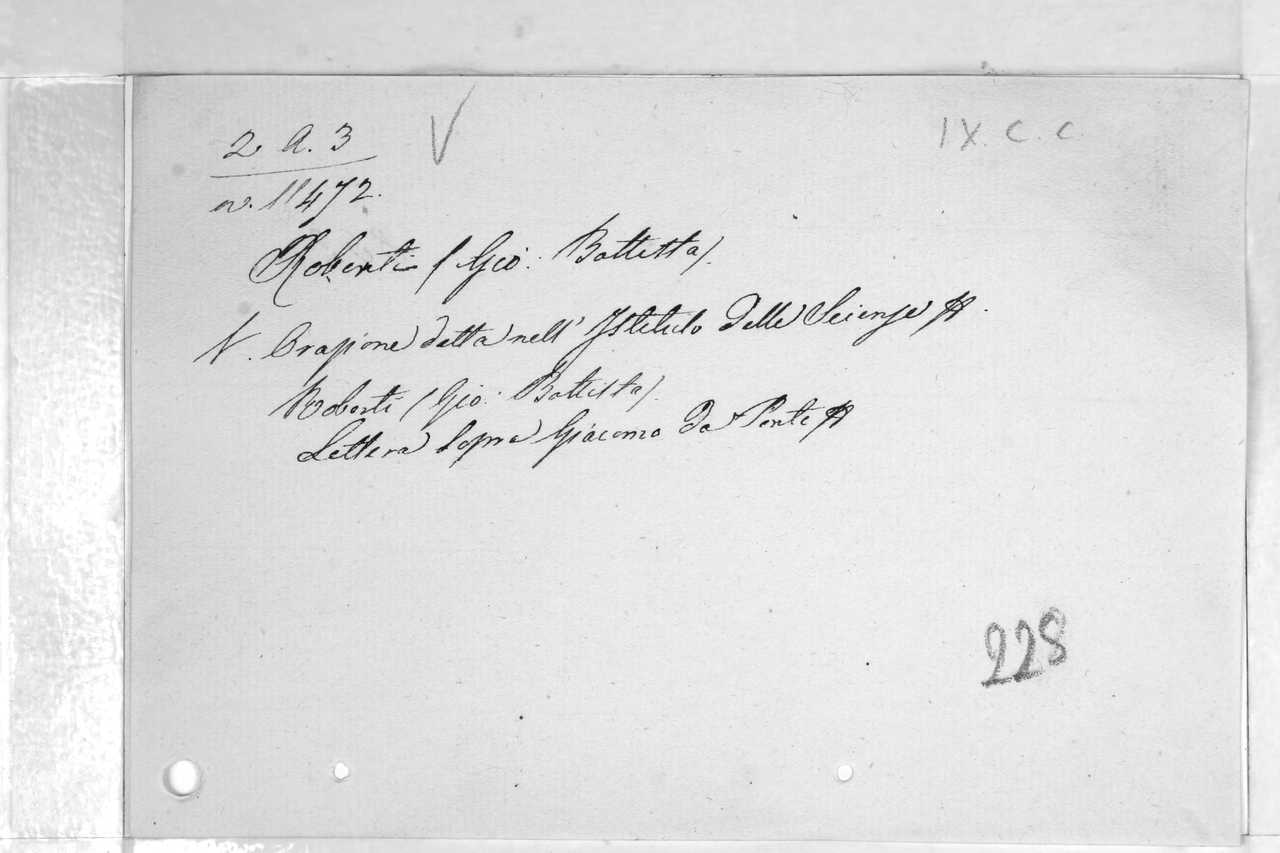 2 A. 3
V
IX. C. C.
n. 11472.
Roberti (Gio: Battista).
V. Orazione detta nell' Istituto delle Scienze &.
Roberti (Gio: Battista).
Lettera sopra Giacomo da Ponte &
228